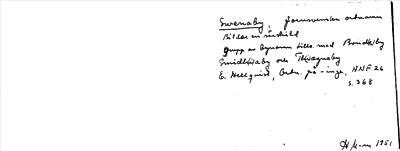 Swenaby, fornsvenska ortnamn
Bildar en särskild
grupp av bynamn tills. med Bondeby
Smidh(a)by och Th(i)ægnaby
E. Hellquist, Ortn. på -inge, ANF 26
s. 368
1951